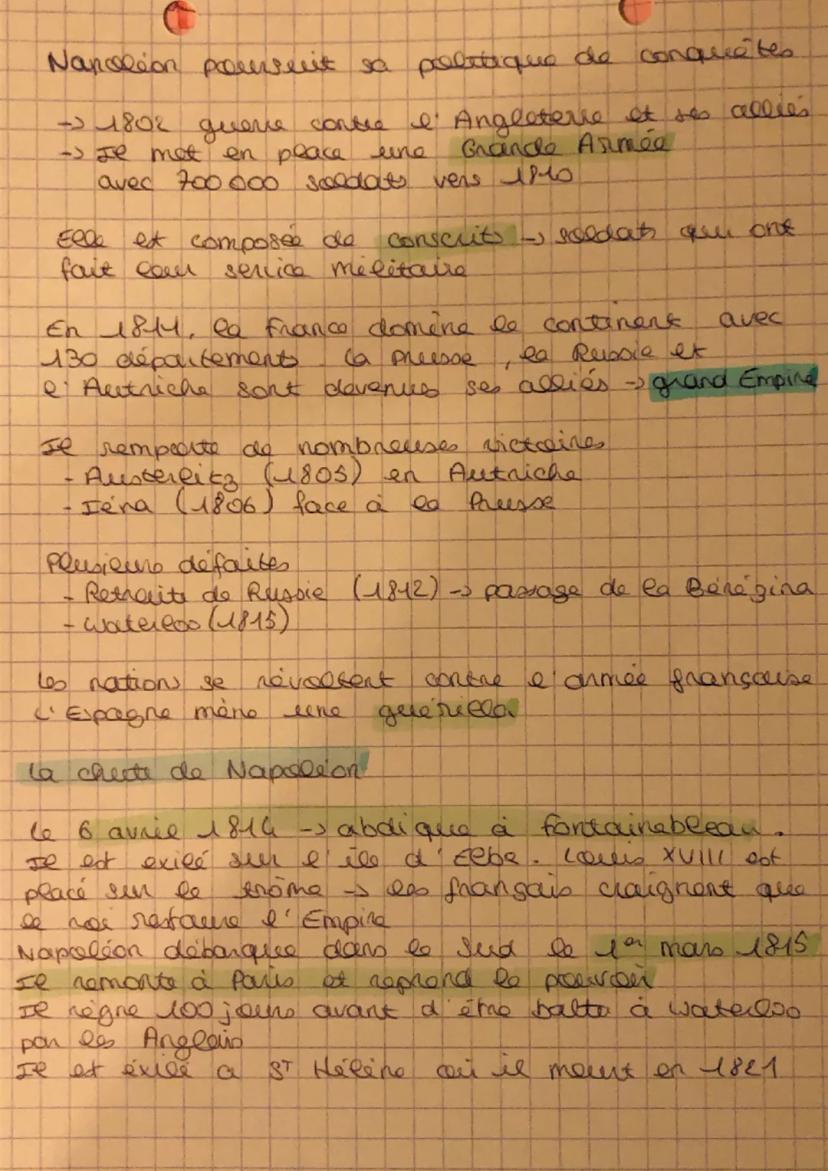 Napoléon poursuit sa politique de conquêtes
-> 1802 guerre contre l'Angleterre et ses alliés
-> Il met en place une Grande Armée
avec 700 000 soldats vers 1810
Elle est composée de conscrits -> soldats qui ont
fait leur service militaire
En 1811, la France domine le continent avec
130 départements. La Prusse, la Russie et
l'Autriche sont devenus ses alliés -> grand Empire
Il remporte de nombreuses victoires
- Austerlitz (1805) en Autriche
- Iéna (1806) face à la Prusse
Plusieurs défaites
- Retraite de Russie (1812) -> passage de la Bérégina
- Waterloo (1815)
Les nations se révoltent contre l'armée française
L'Espagne mène une guérilla
La chute de Napoléon
Le 6 avril 1814 -> abdique à Fontainebleau.
Il est exilé sur l'île d'Elbe. Louis XVIII est
placé sur le trôme -> les français craignent que
le roi restaure l'Empire
Napoléon débarque dans le Sud le 1er mars 1815
Il remonte à Paris et reprend le pouvoir
Il règne 100 jours avant d'être battu à Waterloo
par les Anglais
Il est éxilé a ST Hélène où il meurt en 1821